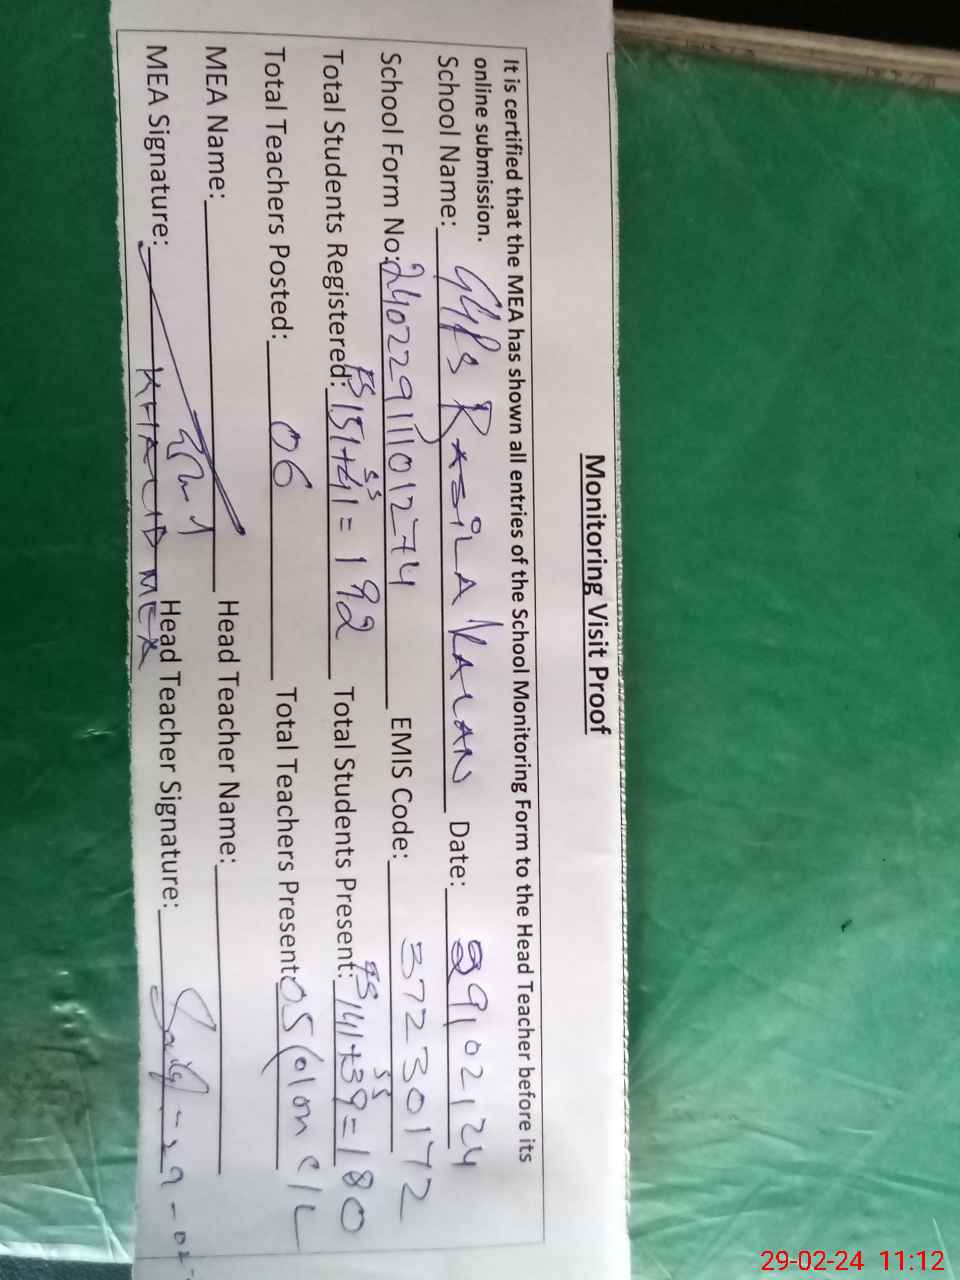 Monitoring Visit Proof
It is certified that the MEA has shown all entries of the School Monitoring Form to the Head Teacher before its
online submission.
School Name: GGPS RASiLA KALAN Date: 29/02/24
School Form No: 24022911101274 EMIS Code: 37230172
Total Students Registered: FS 151 + SS 41 = 192 Total Students Present: FS 141 + SS 39 = 180
Total Teachers Posted: 06 Total Teachers Present: 05 (01 on C/L
MEA Name: Head Teacher Name:
MEA Signature: KHALID MEA Head Teacher Signature:
29-02-24 11:12